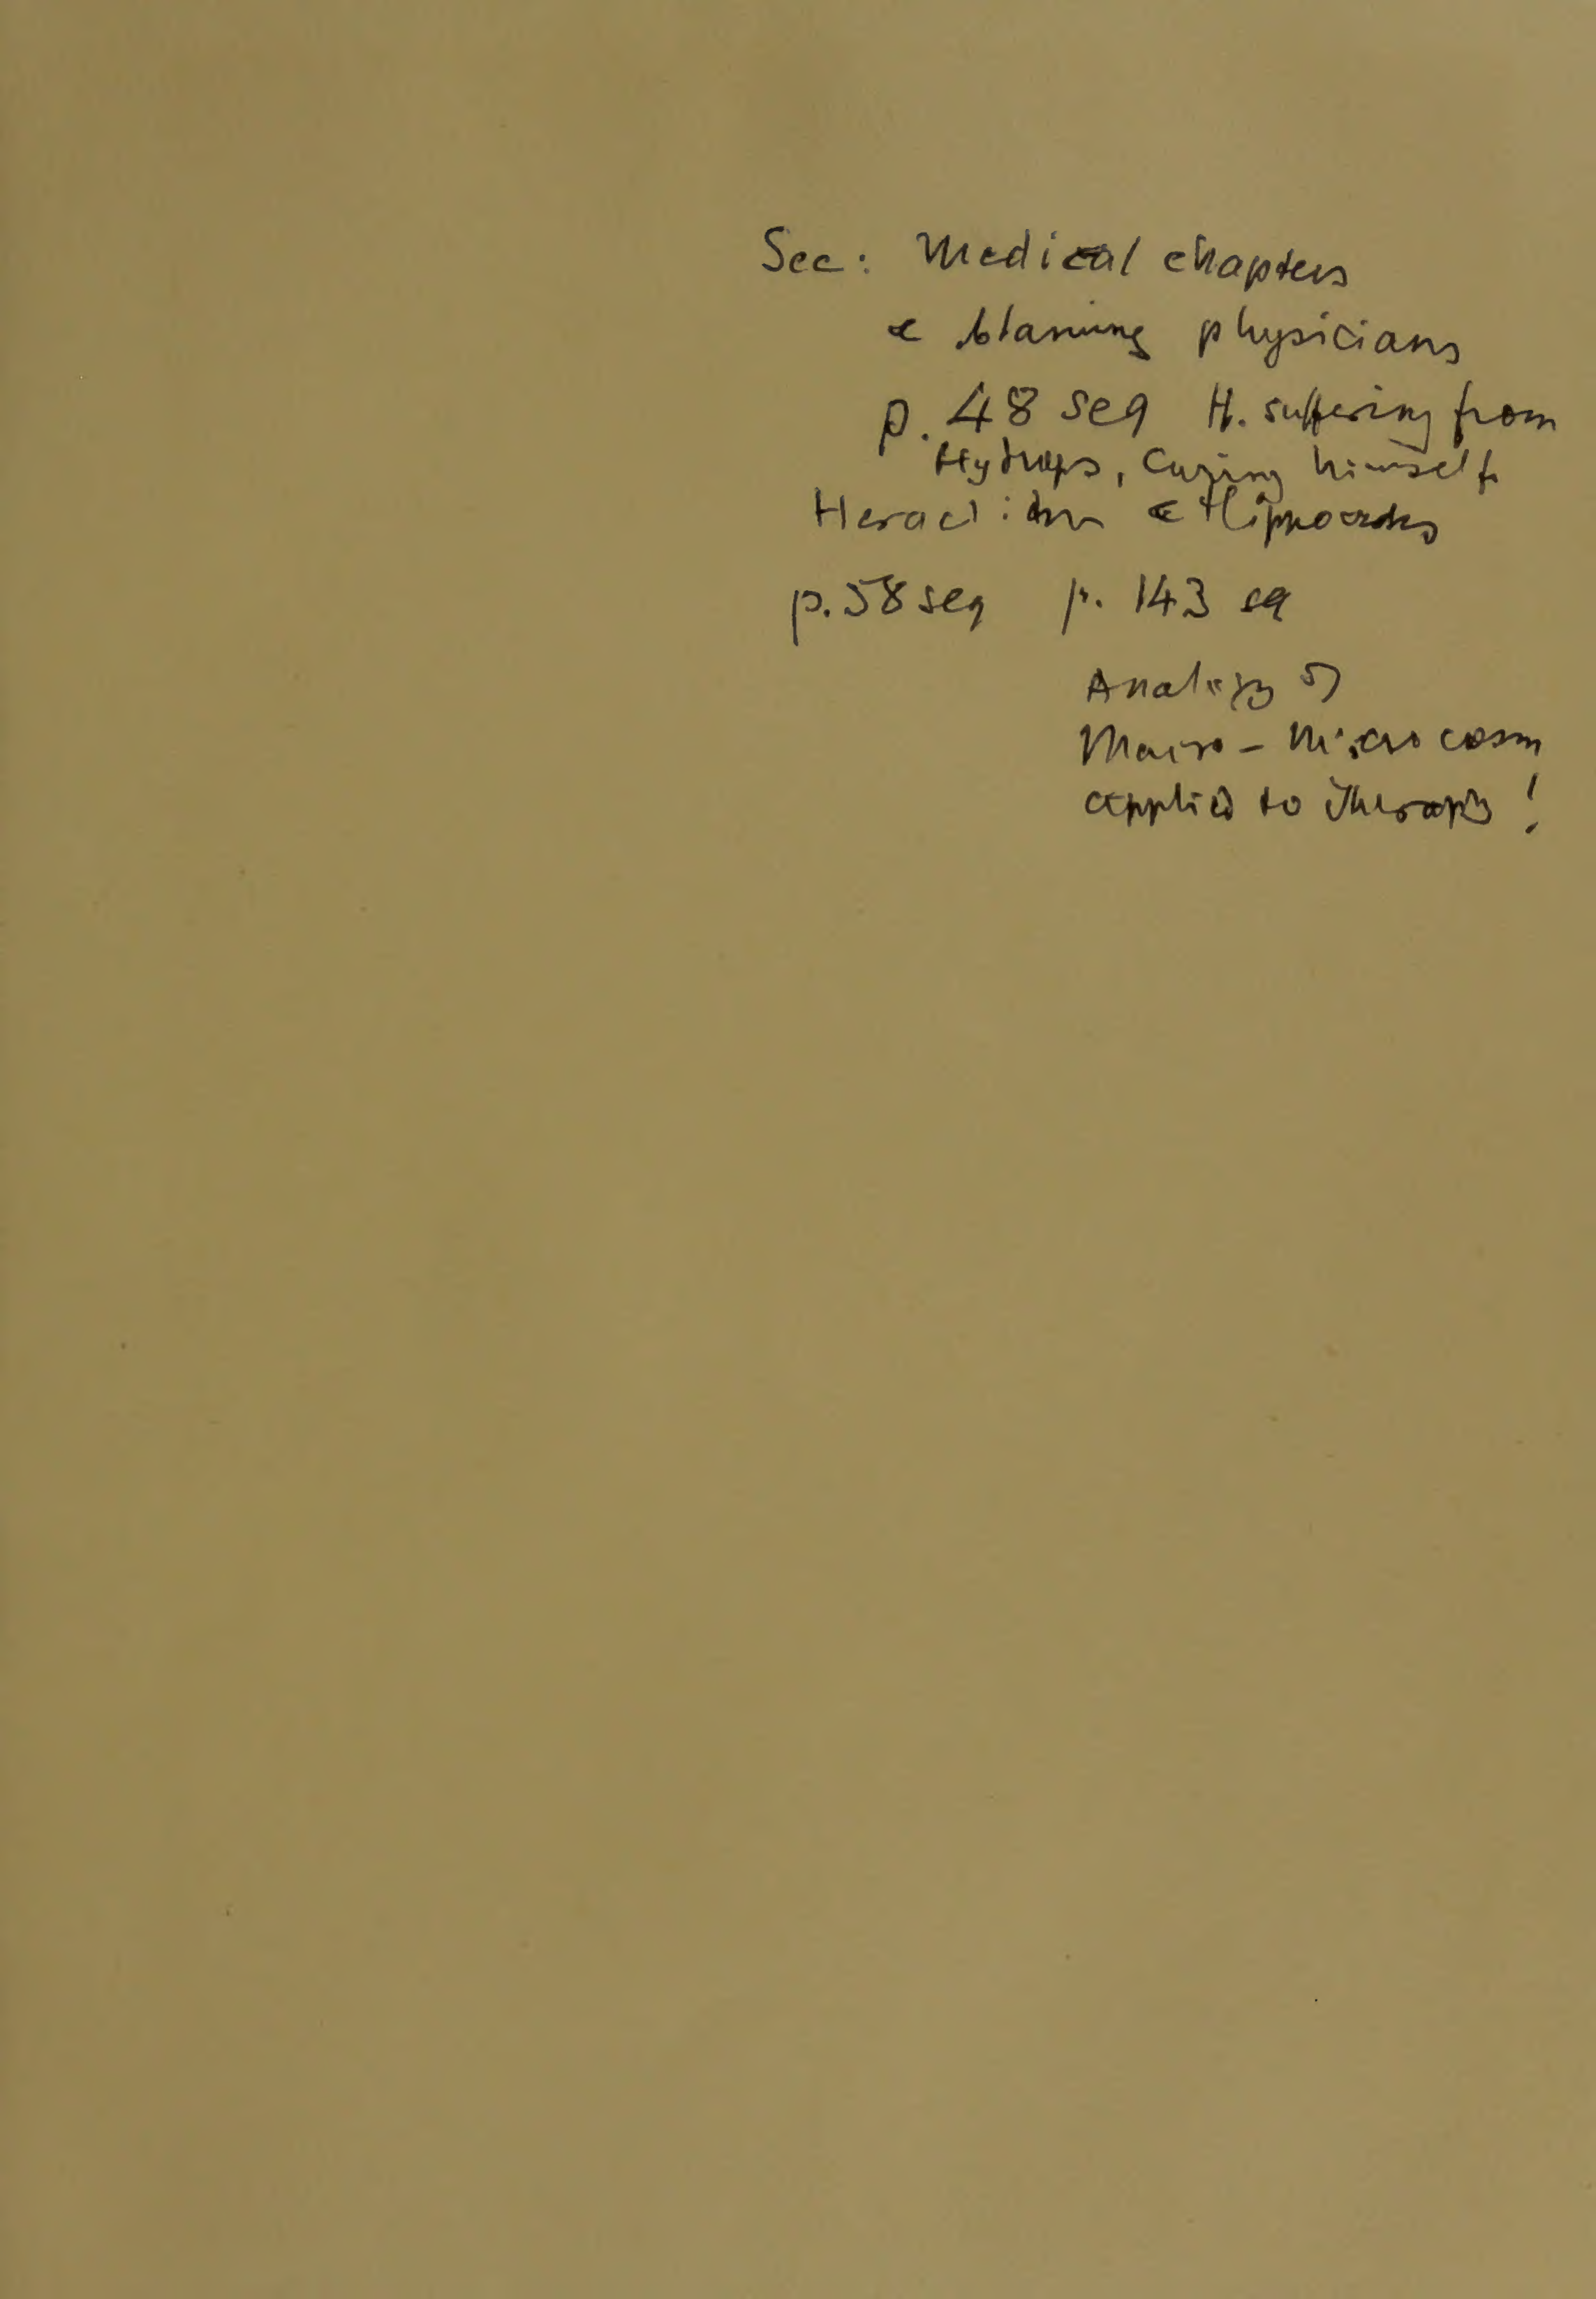 See: Medical chapters
& blaming physicians
p. 48 seq H. suffering from
Hydrops, Curing himself
Heraclitus & Hippocrates
p. 58 seq p. 143 sq
Analogy of
Macro - Microcosm
applied to Therapy!